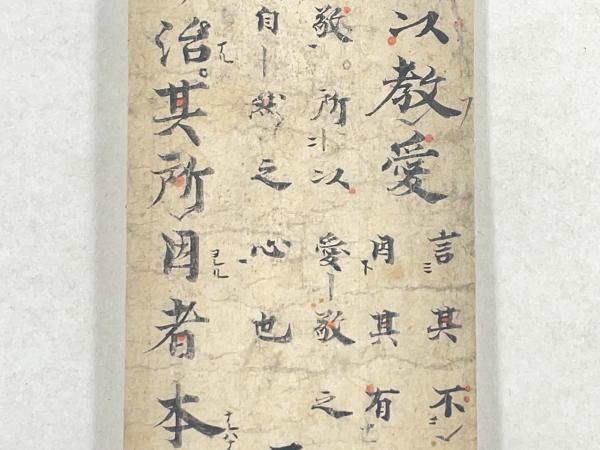 以教愛
言其不
因其有
敬所以愛敬之
自然之心也
治其所因者本